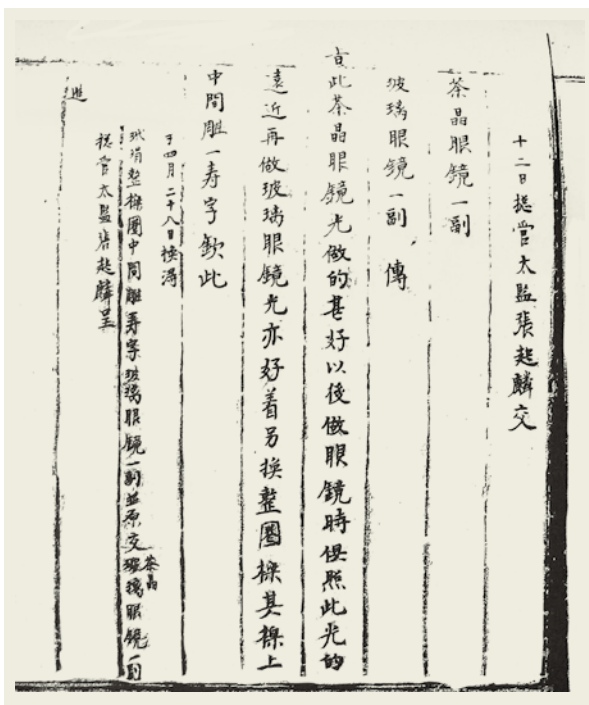 十二日揔管太监張起麟交
茶晶眼鏡一副
玻璃眼鏡一副，傳
㫖此茶晶眼鏡光做的甚好以後做眼鏡時俱照此光的
遠近再做玻璃眼鏡光亦好着另换整圈樑其樑上
中間雕一寿字欽此
于四月二十八日換得
玳瑁整樑圈中間雕寿字玻璃眼鏡一副並原交茶晶玻璃眼鏡一副
揔管太监張起麟呈
進